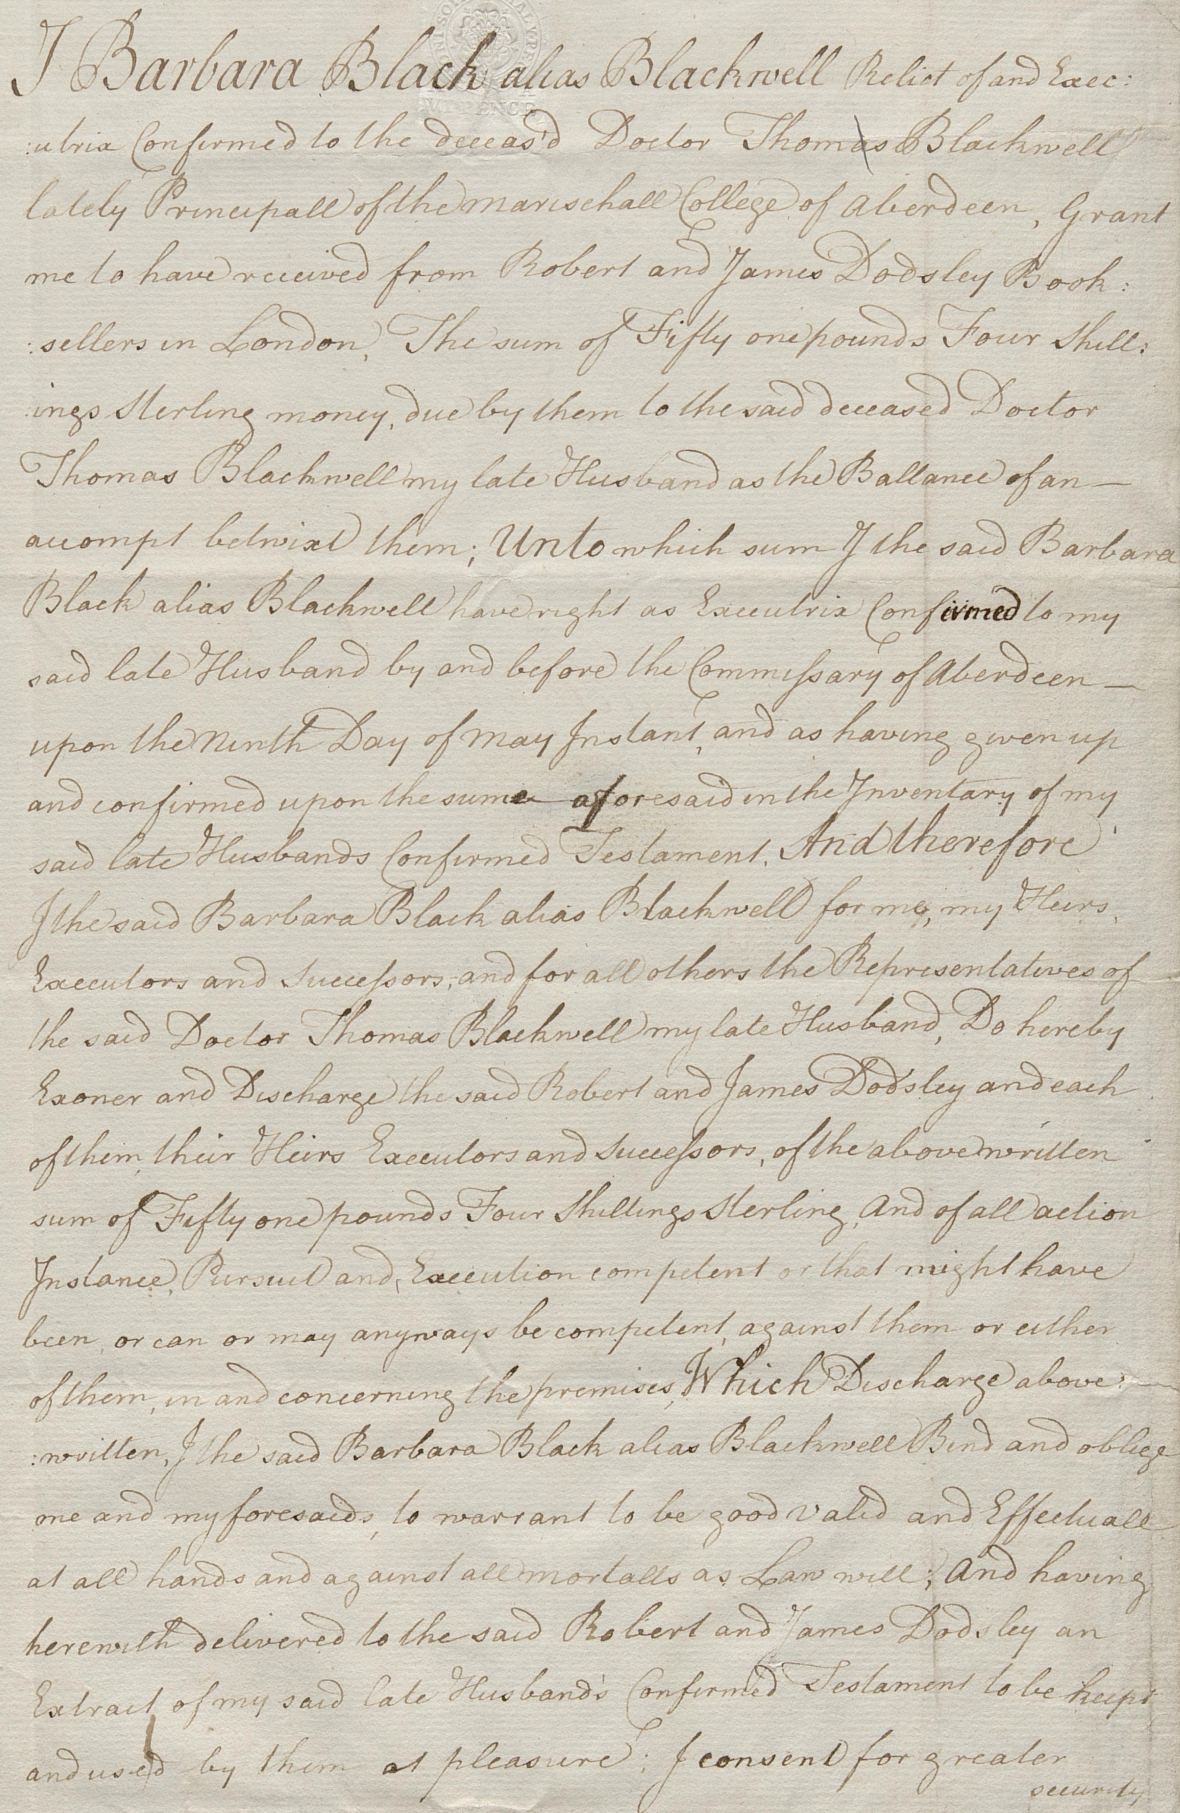 I Barbara Black alias Blackwell Relict of and Exec:
:utrix Confirmed to the deceas'd Doctor Thomas Blackwell
lately Principall of the Marischall College of Aberdeen, Grant
me to have received from Robert and James Dodsley Book:
:sellers in London, The sum of Fifty one pounds Four Shill:
:ings Sterling money, due by them to the said deceased Doctor
Thomas Blackwell my late Husband as the Ballance of an —
accompt betwixt them; Unto which sum I the said Barbara
Black alias Blackwell have right as Executrix Confirmed to my
said late Husband by and before the Commissary of Aberdeen —
upon the Ninth Day of May Instant, and as having given up
and confirmed upon the sume aforesaid in the Inventary of my
said late Husbands Confirmed Testament, And therefore
I the said Barbara Black alias Blackwell for me, my Heirs,
Executors and Successors, and for all others the Representatives of
the said Doctor Thomas Blackwell my late Husband, Do hereby
Exoner and Discharge the said Robert and James Dodsley and each
of them, their Heirs Executors and Successors, of the above written
sum of Fifty one pounds Four Shillings Sterling, And of all action
Instance, Pursuit and, Execution competent or that might have
been, or can or may anyways be competent, against them or either
of them, in and concerning the premises, Which Discharge above: —
:written, I the said Barbara Black alias Blackwell Bind and oblige
me and my foresaids, to warrant to be good valid and Effectuall
at all hands and against all mortalls as Law will; And having
herewith delivered to the said Robert and James Dodsley an
Extract of my said late Husband's Confirmed Testament to be keept
and used by them at pleasure; I consent for greater
security